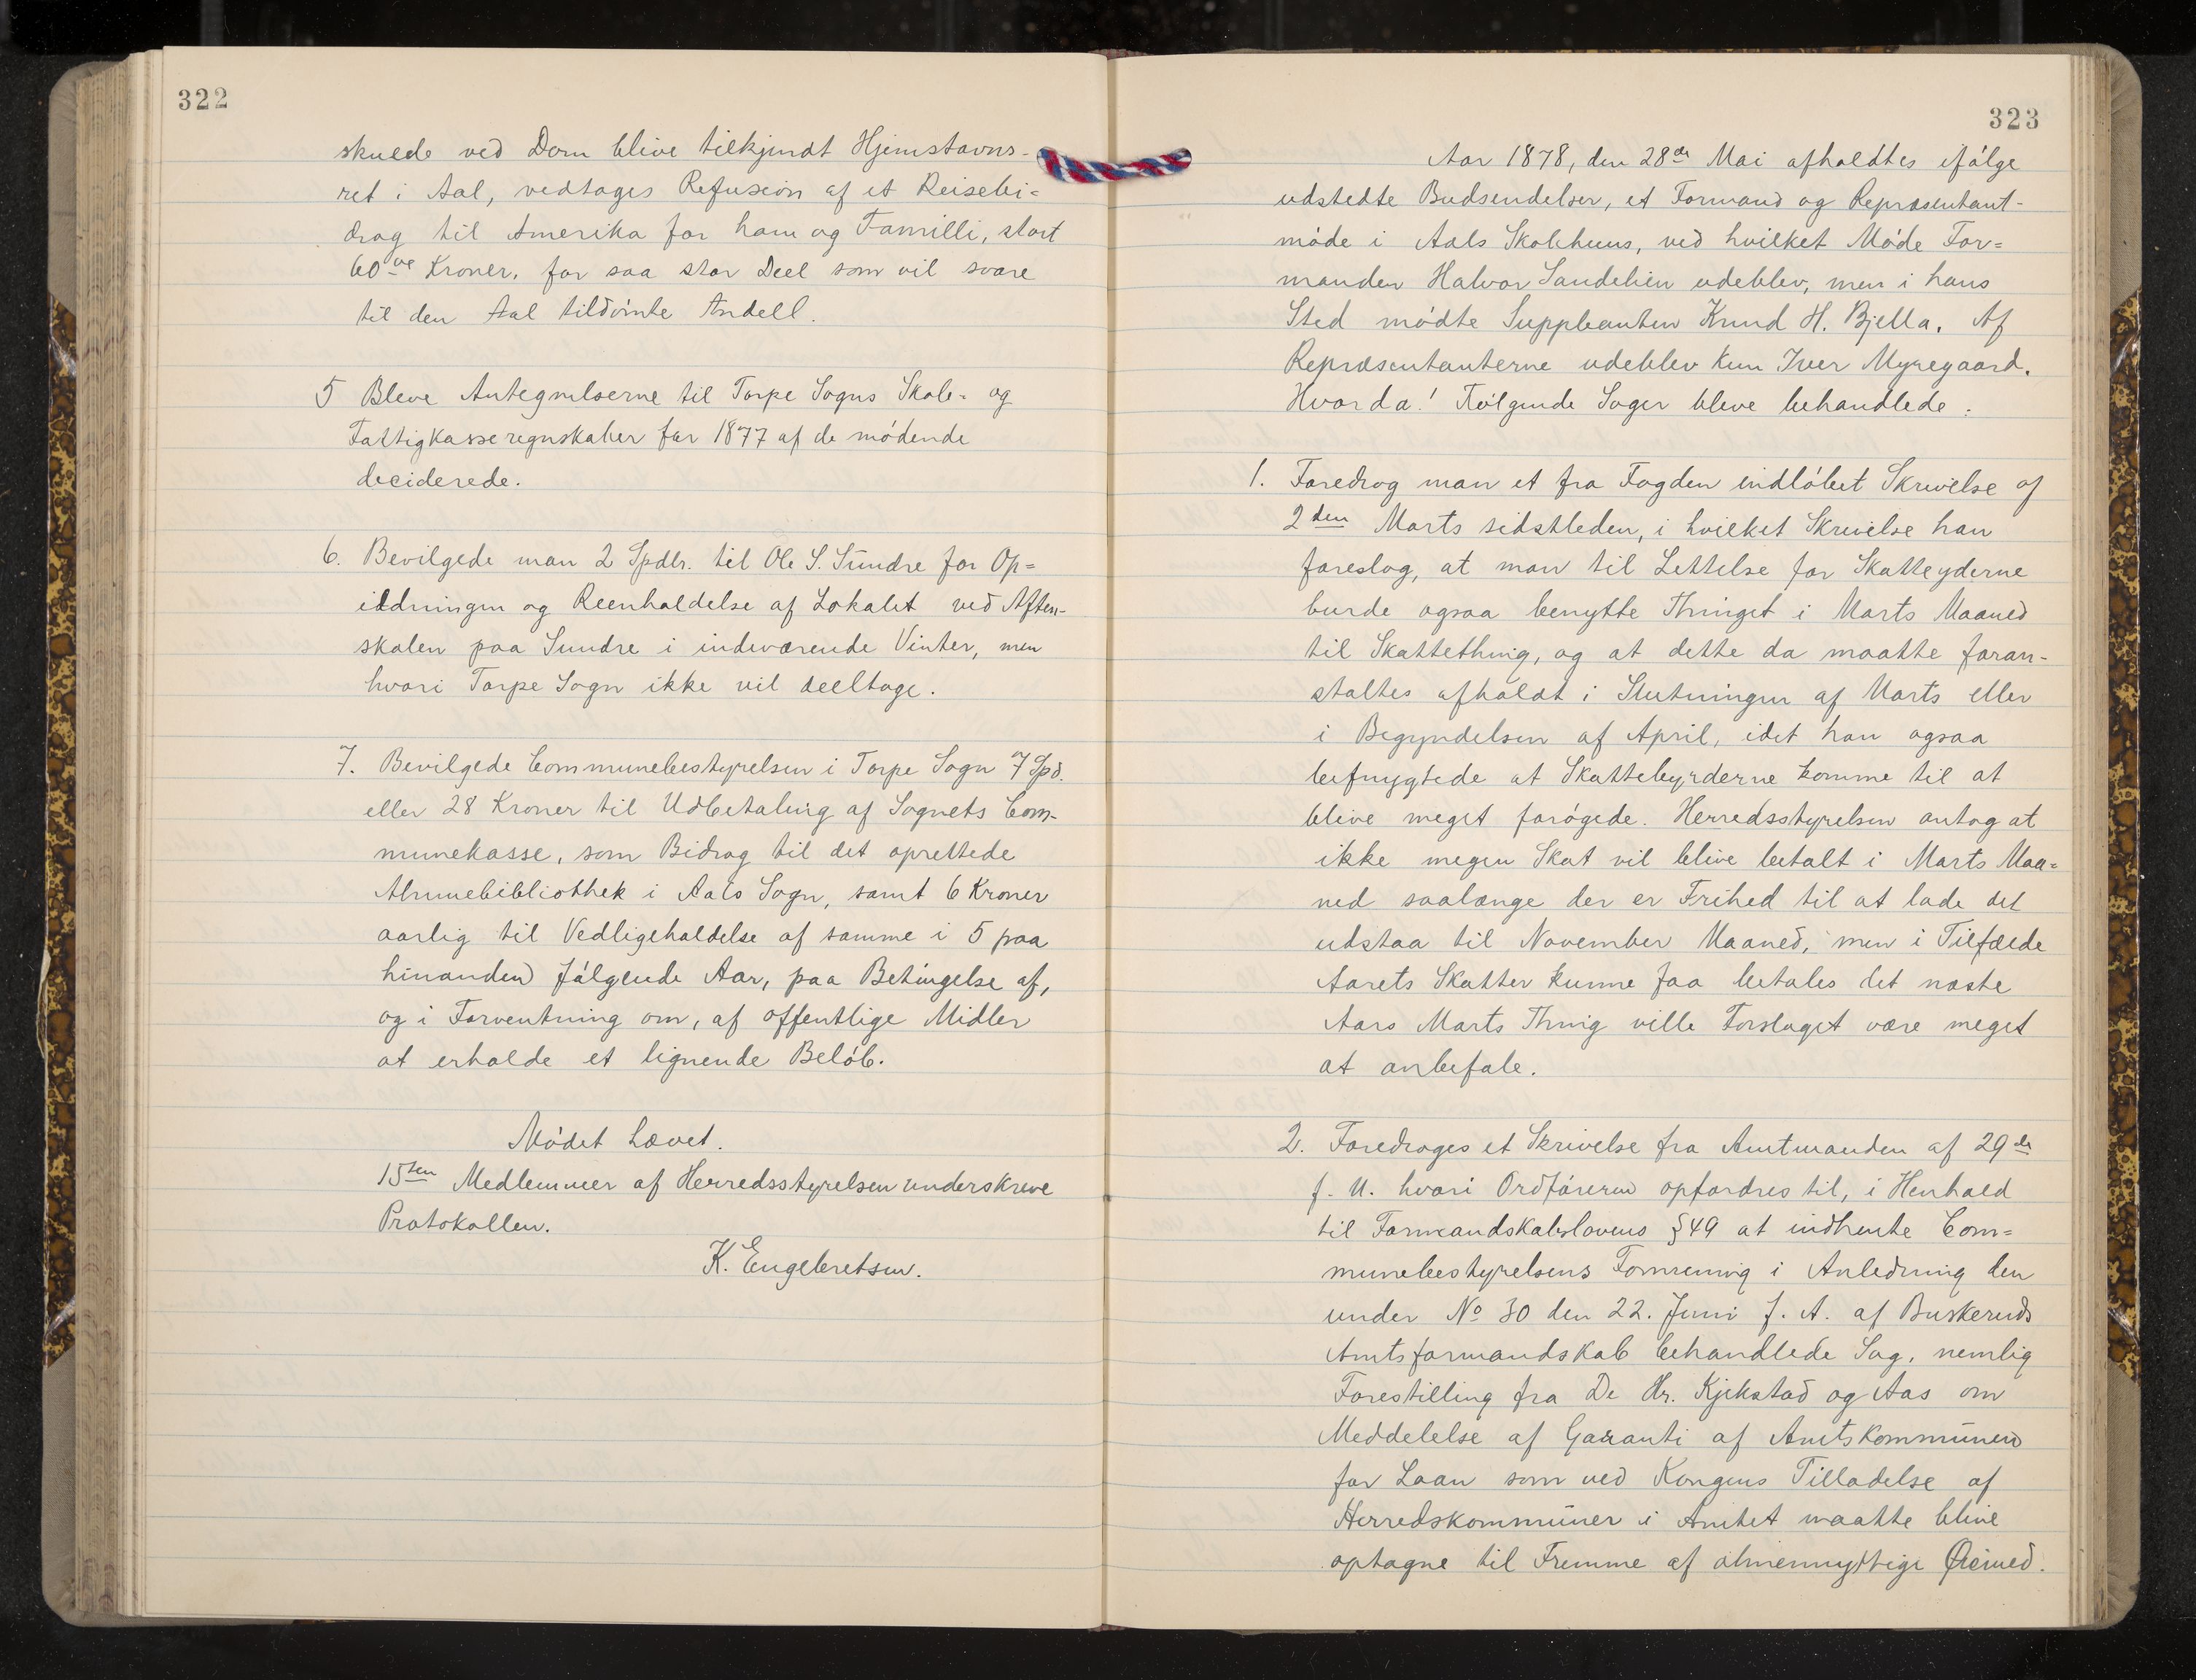 322
skulde ved Dom blive tilkjendt Hjemstavns-
ret i Aal, vedtages Refusion af et Reisebi=
drag til Amerika for ham og Familli, stort
60ve Kroner, for saa stor Deel som vil svare
til den Aal tildömte Andell.
5 Bleve Antegnelserne til Torpe Sogns Skole- og
Fattigkasseregnskaber for 1877 af de mödende
deciderede.
6. Bevilgede man 2 Spdlr. til Ole S. Sundre for Op=
ildningen og Reenholdelse af Lokalet ved Aften-
skolen paa Sundre i indeværende Vinter, men
hvori Torpe Sogn ikke vil deeltage.
7. Bevilgede Communebestyrelsen i Torpe Sogn 7 Spd.
eller 28 Kroner til Udbetaling af Sognets Com-
munekasse, som Bidrag til det oprettede
Almuebibliothek i Aals Sogn, samt 6 Kroner
aarlig til Vedligeholdelse af samme i 5 paa
hinanden fölgende Aar, paa Betingelse af,
og i Forventning om, af offentlige Midler
at erholde et lignende Belöb.
Mödet hævet.
15ten Medlemmer af Herredsstyrelsen underskreve
Protokollen.
K. Engebretsen.
323
Aar 1878, den 28de Mai afholdtes ifölge
udstedte Budsendelser, et Formand og Repræsentant-
möde i Aals Skolehuus, ved hvilket Möde For=
manden Halvor Sandelien udeblev, men i hans
Sted mödte Suppleanten Knud H. Bjella. Af
Repræsentanterne udeblev kun Iver Myregaard.
Hvorda! Fölgende Sager bleve behandlede:
1. Foredrog man et fra Fogden indlöbet Skrivelse af
2den Marts sidstleden, i hvilket Skrivelse han
foreslog, at man til Lettelse for Skatteyderne
burde ogsaa benytte Thinget i Marts Maaned
til Skattething, og at dette da maatte foran-
staltes afholdt i Slutningen af Marts eller
i Begyndelsen af April, idet han ogsaa
befrygtede at Skattebyrderne komme til at
blive meget forögede. Herredsstyrelsen antog at
ikke megen Skat vil blive betalt i Marts Maa=
ned saalænge der er Frihed til at lade det
udstaa til November Maaned, men i Tilfælde
Aarets Skatter kunne faa betales det næste
Aars Marts Thing ville Forslaget være meget
at anbefale.
2. Foredroges et Skrivelse fra Amtmanden af 29de
f. M. hvori Ordföreren opfordres til, i Henhold
til Formandskabslovens §49 at indhente Com=
munebestyrelsens Formening i Anledning den
under No 30 den 22. Juni f. A. af Buskeruds
Amtsformandskab behandlede Sag, nemlig
Forestilling fra De Hr. Kjekstad og Aas om
Meddelelse af Garanti af Amtskommunen
for Laan som ved Kongens Tilladelse af
Herredskommuner i Amtet maatte blive
optagne til Fremme af almennyttige Øiemed.